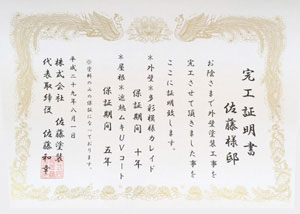 完工証明書
佐藤様邸
お陰さまで外壁塗装工事を
完工させて頂きました事を
ここに証明致します。
＊外壁＊多彩模様カレイド
保証期間　十年
＊屋根＊遮熱ムキUVコート
保証期間　五年
※塗料のみの保証になっております。
平成二十九年八月一日
株式会社　佐藤塗装
代表取締役　佐藤和幸